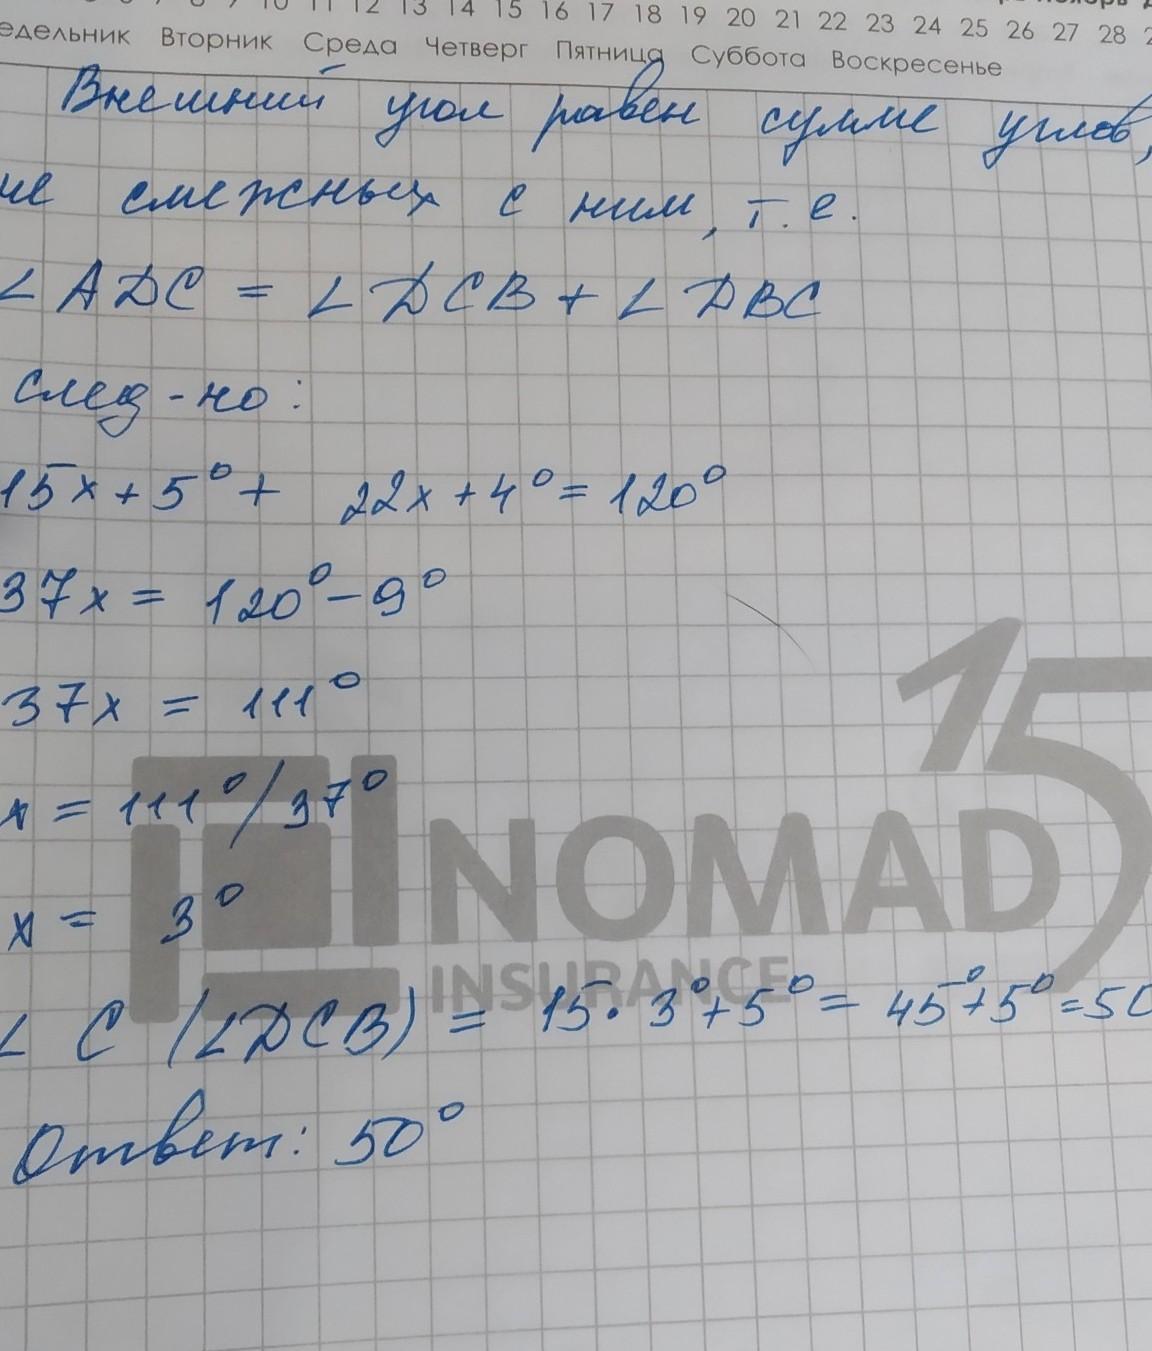 10 11 12 13 14 15 16 17 18 19 20 21 22 23 24 25 26 27 28
Вторник Среда Четверг Пятница Суббота Воскресенье
Внешний угол равен сумме углов,
не смежных с ним, т.е.
∠ ADC = ∠ DCB + ∠ DBC
след-но:
15x + 5° + 22x + 4° = 120°
37x = 120° - 9°
37x = 111°
x = 111° / 37°
x = 3°
15
NOMAD
INSURANCE
∠ C (∠DCB) = 15 · 3° + 5° = 45° + 5° = 50
Ответ: 50°